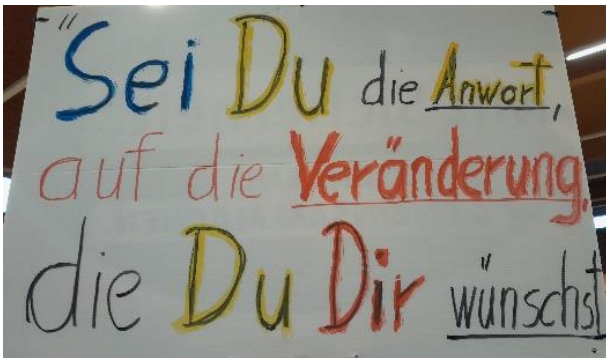 "Sei Du die Anwort,
auf die Veränderung,
die Du Dir wünschst